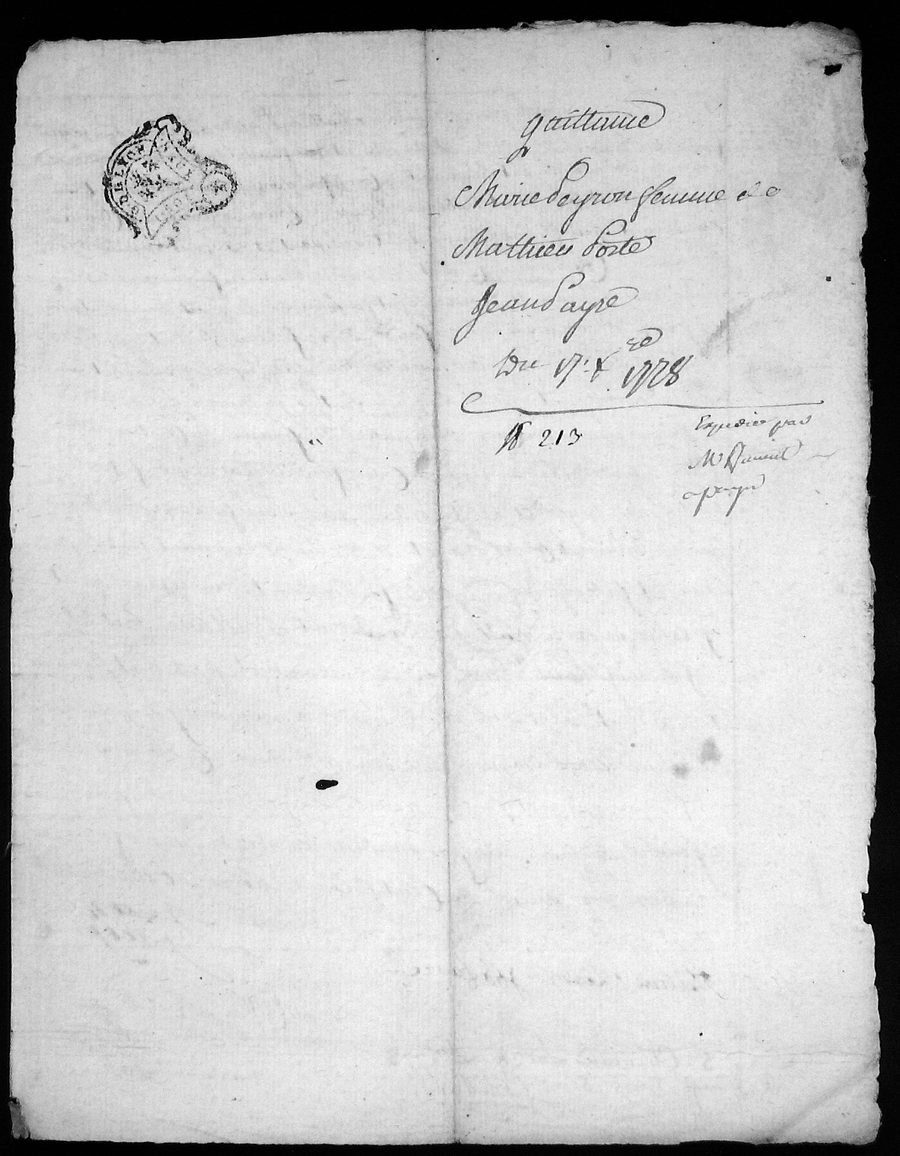 quittance
Marie Peyron femme de
Mathieu Porte
Jean Payre
Du 17: Xre 1728
N 213
Expedié par
Mr